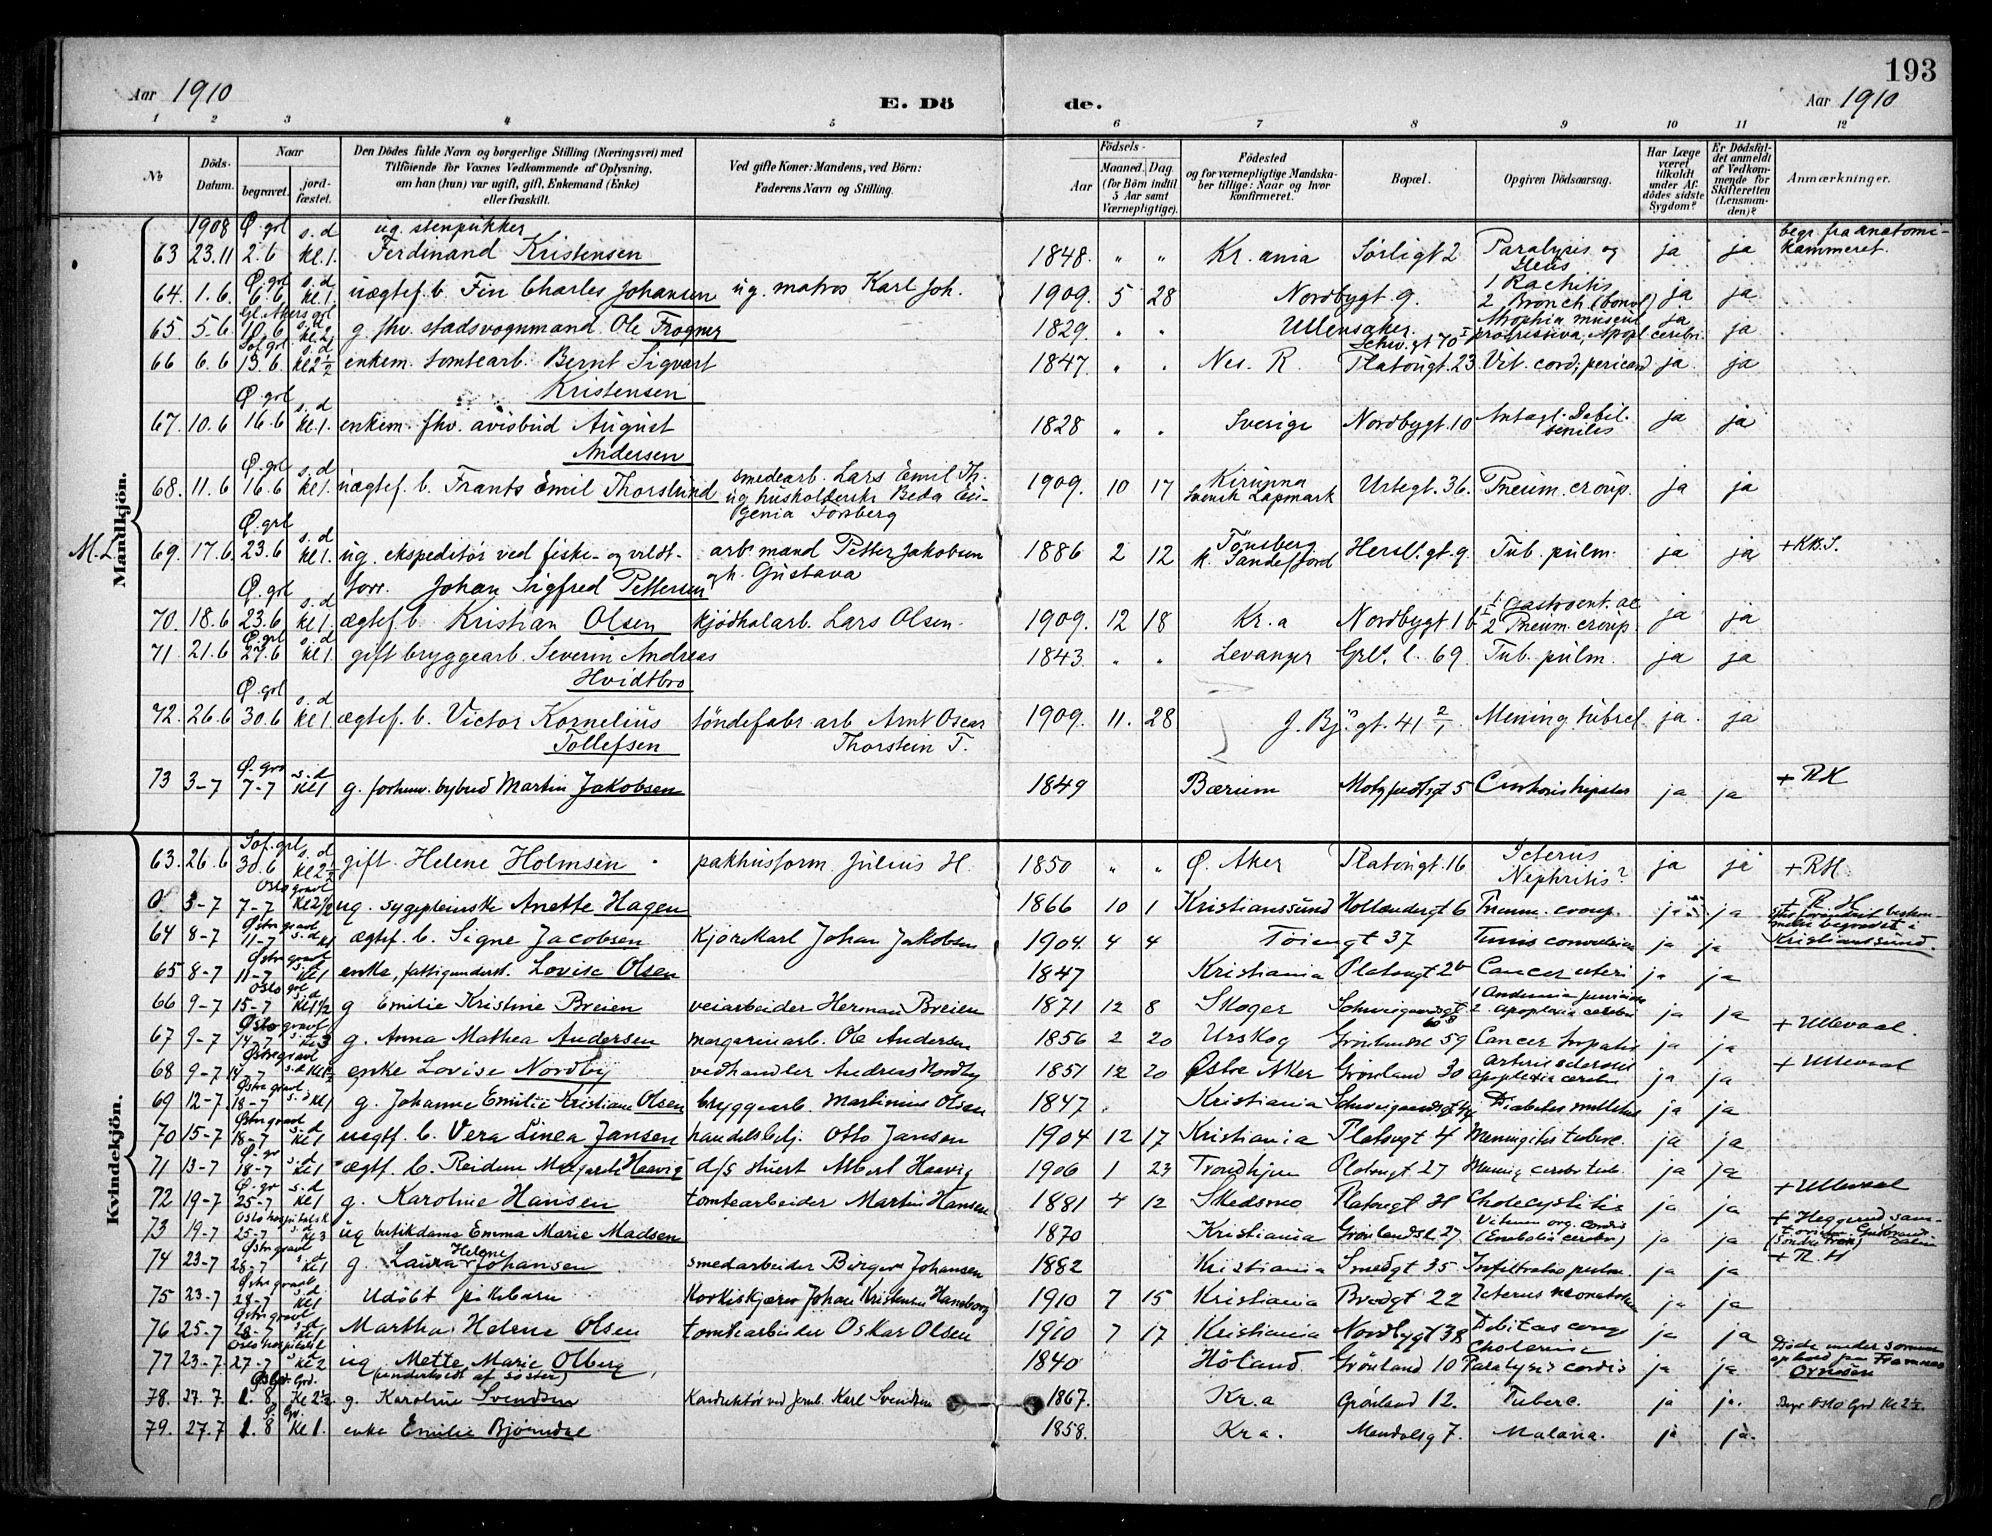 193
Aar 1910
E. Dö
de.
Aar 1910
1 2 3 4 5 6 7 8 9 10 11 12
№
Döds-Datum.
Naar
begravet.
jord-fæstet.
Den Dödes fulde Navn og borgerlige Stilling (Næringsvei) med
Tilföiende for Voxnes Vedkommende af Oplysning,
om han (hun) var ugift, gift, Enkemand (Enke)
eller fraskilt.
Ved gifte Koner: Mandens, ved Börn:
Faderens Navn og Stilling.
Födsels-
Aar
Maaned. Dag.
(for Börn indtil
5 Aar samt
Værnepligtige).
Födested
og for værnepligtige Mandska-
ber tillige: Naar og hvor
konfirmeret.
Bopæl.
Opgiven Dödsaarsag.
Har Læge
været
tilkaldt
under Af-
dödes sidste
Sygdom?
Er Dödsfal-
det anmeldt
af Vedkom-
mende for
Skifteretten
(Lensman-
den)?
Anmærkninger.
Mandkjön.
1908 Ø. grl s. d ug. stenpukker begr. fra anatomi-
63 23.11 2.6 kl. 1. Ferdinand Kristensen 1848 " " Kr.ania Sørligt 2 Paralysis og Ileus ja ja kammeret.
Ø. grl s. d
64. 1.6. 6.6 kl 1. uægtef. b. Fin Charles Johansen ug. matros Karl Joh. 1909. 5 28 Nordbygt 9. 1 Rachitis 2 Bronch. ja ja
Gl. Akers grl s. d
65. 5.6 10.6 kl. 2. g. fhv. stadsvognmand. Ole Frogner 1829. " " Ullensaker. Schw. gt 70 Atrophia muscul progressiva, Apopl. cerebri ja ja
Sof. grl s. d
66 6.6 13.6. kl 2½ enkem. tomtearb. Bernt Sigvart Kristensen 1847. " . Nes. R. Platougt. 23 Vit. cord; pericard ja ja
Ø. grl s. d
67. 10.6 16.6 kl. 1. enkem. fhv. avisbud August Andersen 1828 " " Sverige Nordbygt. 10 Antagl. Debil. senilis ja ja
Ø. grl s. d
68. 11.6 16.6 kl 1. uægtef. b. Frants Emil Thorslund smedearb. Lars Emil Th. ug husholderske Beda Eugenia Forsberg 1909. 10 17 Kiruna Svensk Lapmark Urtegt. 36. Pneum. croup. ja ja
Ø. grl s. d
M.L 69. 17.6. 23.6 kl 1. ug. ekspeditør ved fiske- og vildt-forr. Johan Sigfred Pettersen arb.mand Petter Jakobsen oh. Gustava 1886 2 12 Tønsberg k. Sandefjord Hersl. gt. 9. Tub. pulm. ja ja + KB.S.
Ø. grl s. d
70. 18.6 23.6 kl 1. ægtef. b. Kristian Olsen kjødholarb. Lars Olsen. 1909. 12 18 Kr.a Nordbygt 1 b 1. Gastroent. ac 2 Pneum. croup. ja ja
Ø. grl s. d
71 21.6 27.6 kl 1 gift bryggearb. Severin Andreas Hvidtbro 1843. " " Levanger Grl. l. 69. Tub. pulm. ja ja
Ø. grl s. d
72. 26.6 30.6 kl 1 ægtef. b. Victor Kornelius Tollefsen tøndefabr arb Arnt Oscar Thorstein T. 1909. 11. 28 J. Bj. gt. 41 2/1 Mening. tubrcl ja. ja
Ø. grv s. d
73 3-7 7-7 Kl 1 g. forhenv. bybud Martin Jakobsen 1849 Bærum Motzfeldtsgt 5 ja ja + RH
Kvindekjön.
Sof. grl s. d
63. 26.6 30.6 kl 2½ gift. Helene Holmsen pakhusform Julius H. 1850 " " Ø. Aker Platougt. 16 Icterus Nephritis? ja ja + RH
Oslo gravl
3-7 7-7 Kl 2½ ug. sygepleierske Anette Hagen 1866 10 1 Kristianssund Hollendergt 6 Pneum. croup. ja ja + R H
Østre gravl s. d
64 8-7 11-7 kl ægtef. b. Signe Jacobsen Kjørekarl Johan Jakobsen 1904. 4 4 Tøiengt 37 ja ja begravet i Kristianssund.
Østre gravl s. d
65 8-7 11-7 kl 1 enke, fattigunderst. Lovise Olsen 1847 Kristiania Platougt 2b Cancer uteri ja ja
Oslo grl s. d
66 9-7 15-7 Kl 1½ g Emilie Kristine Breien veiarbeider Herman Breien 1871 12 8 Skoger Schweigaardsgt 60 B 2. Apoplexia cerebri ja ja
Østre gravl s. d
67 9-7 14-7 Kl 3 g. Anna Mathea Andersen margarinarb. Ole Andersen 1856 2 20 Urskog Grønlandsl 59 Cancer hepatis ja ja + Ullevaal.
Østre gravl s. d
68 9-7 14-7 enke Lovise Nordby vedhandler Andreas Nordby 1851 12 20 Østre Aker Grønland 30 Arterio sclerosis Apoplexia cerebri ja ja + Ullevaal
Østre gravl. s. d
69 12-7 18-7 kl 1 g. Johanne Emilie Kristiane Olsen bryggearb. Martinius Olsen 1847 . Kristiania Schweigaardsgt Diabetes mellitus ja ja
Østre gravl s. d
70 15-7 18-7 Kl 1 uegtf. b. Vera Linea Jansen handelsbetj. Otto Jansen 1904 12 17 Kristiania Platougt 4 Meningitis tuberc. ja ja
Ø. gr s. d
71 13-7 18-7 Kl 1 ægtf. b. Reidun Margarete Haavig d/s stuert Albert Haavig 1906 1 23 Trondhjem Platougt 27 Mening cerebr tub. ja ja
Ø. gr s. d
72 19-7 25-7 Kl 1 g. Karoline Hansen tomtearbeider Martin Hansen 1881 4 12 Skedsmo Platougt Cholecystitis ja ja + Ullevaal
Oslo hospitalsk s. d
73 19-7 25-7 Kl 3 ug butikdame Emma Marie Madsen 1870 Kristiania Grønlandsl 27 Vitium org. cordis (Embolia cerebri) ja ja + Heggerud sana-
Østre gravl s. d
74 23-7 28-7 Kl 1 g. Laura Helene Johansen smedarbeider Birger Johansen 1882 Kristiania Smedgt 35 Infiltratio pulm. ja ja + R. H
Østre gravl s. d
75 23-7 28-7 Kl 1 Udøbt pikebarn Korkskjærer Johan Kristensen Haneborg 1910 7 15 Kristiania Bredgt 22 Icterus neonatorum ja ja
Østre gravl s. d
76 25-7 28-7 Kl 1 Martha Helene Olsen tomtearbeider Oskar Olsen 1910 7 17 Kristiania Nordbygt 38 Debilitas cong Cholerine ja ja
Oslo hospitalsk s. d
77 23-7. 27-7 Kl 2 ug. Mette Marie Olberg (underholdt af søster) 1840 Høland Grønland 10 Paralysis cordis ja ja Døde under sommerophold paa Framnæs Ormøen
Oslo Grd.
78. 27.7 1. 8 Kl 2½ g. Karoline Svendsen Konduktør ved Jernb. Karl Svendsen 1867. Kr.a Grønland 12. Tuberc. ja ja. Begr Oslo Grd Kl 2½
Ø. Gr.
79. 27.7 1. 8 Kl 1. enke Emilie Bjørndal 1858. Kr a. Mandalsg 7. Malaria. ja ja.